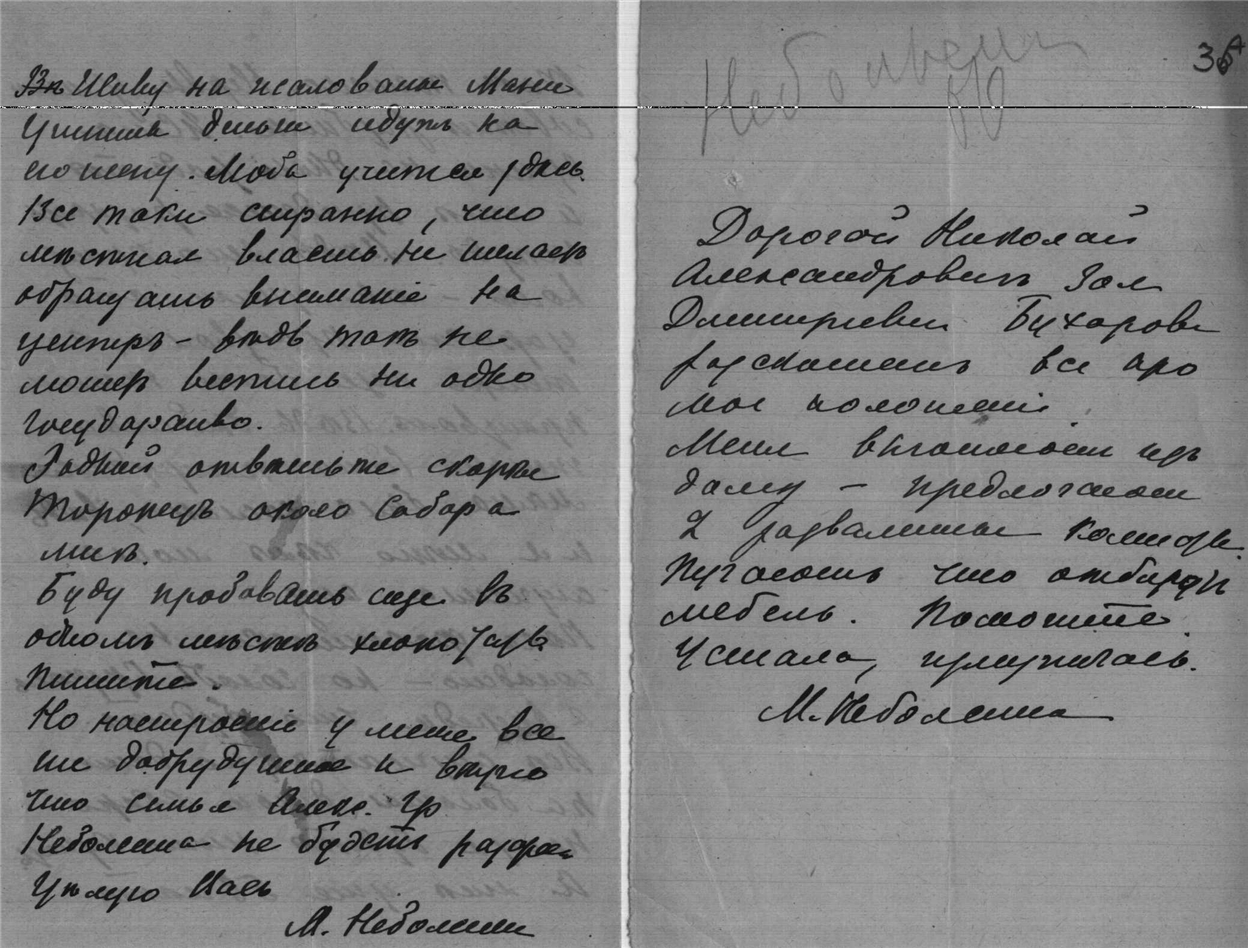 Живу на жалованье Мани
деньги идутъ на
Моба учится здесь.
Все таки странно, что
мѣстная власть не желаетъ
обращать вниманіе на
центръ – вѣдь такъ не
можетъ вестись ни одно
государство.
Родной отвѣтьте скорѣе
Торопецъ около Собора
мнѣ.
Буду пробовать еще въ
одномъ мѣстѣ
Пишите.
Но настроеніе у меня все
же добродушное и вѣрю
что семья Алекс. Гр
Неболсина не будетъ
Цѣлую Васъ
М. Неболсина
Неболсина
Ю
36
Дорогой Николай
Александровичъ
Дмитріевна Бухарова
разскажетъ все про
мое положеніе
Меня выгоняютъ изъ
дому – предлогаютъ
2 развалины комнаты.
Пугаютъ что отберутъ
мебель. Помогите.
Устала, измучилась.
М. Неболсина